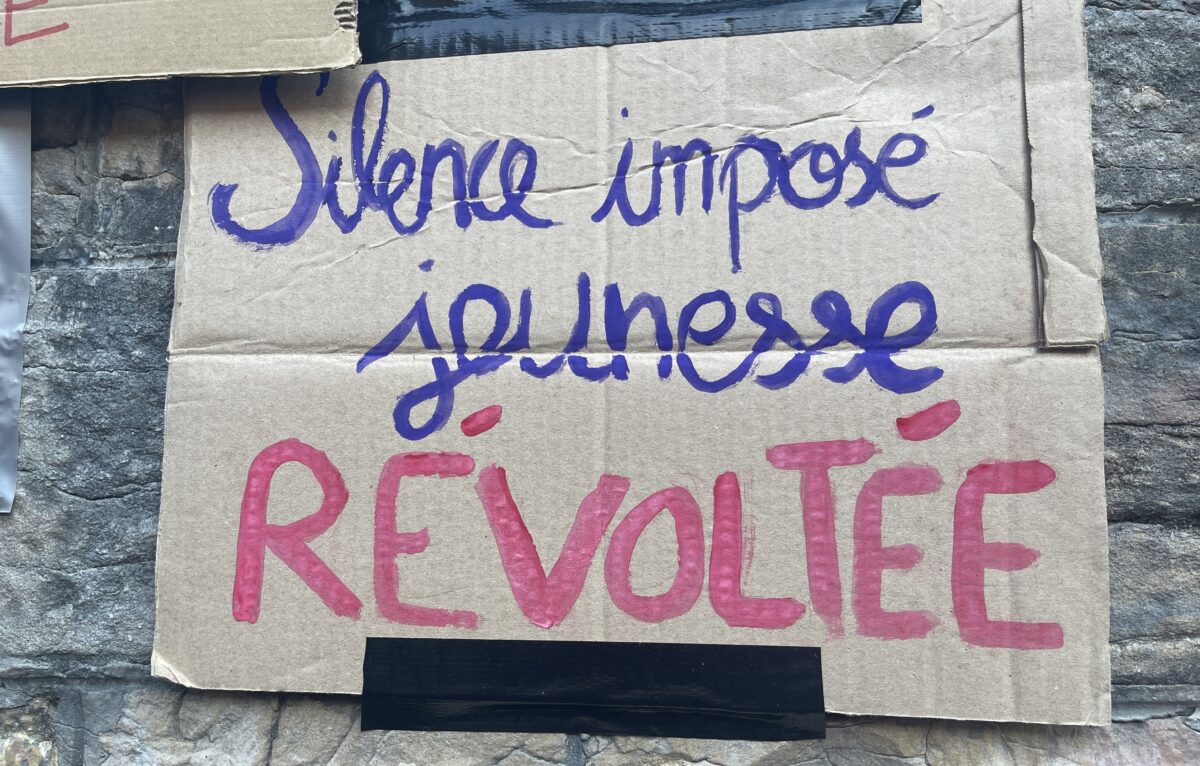 E
Silence imposé
jeunesse
RÉVOLTÉE